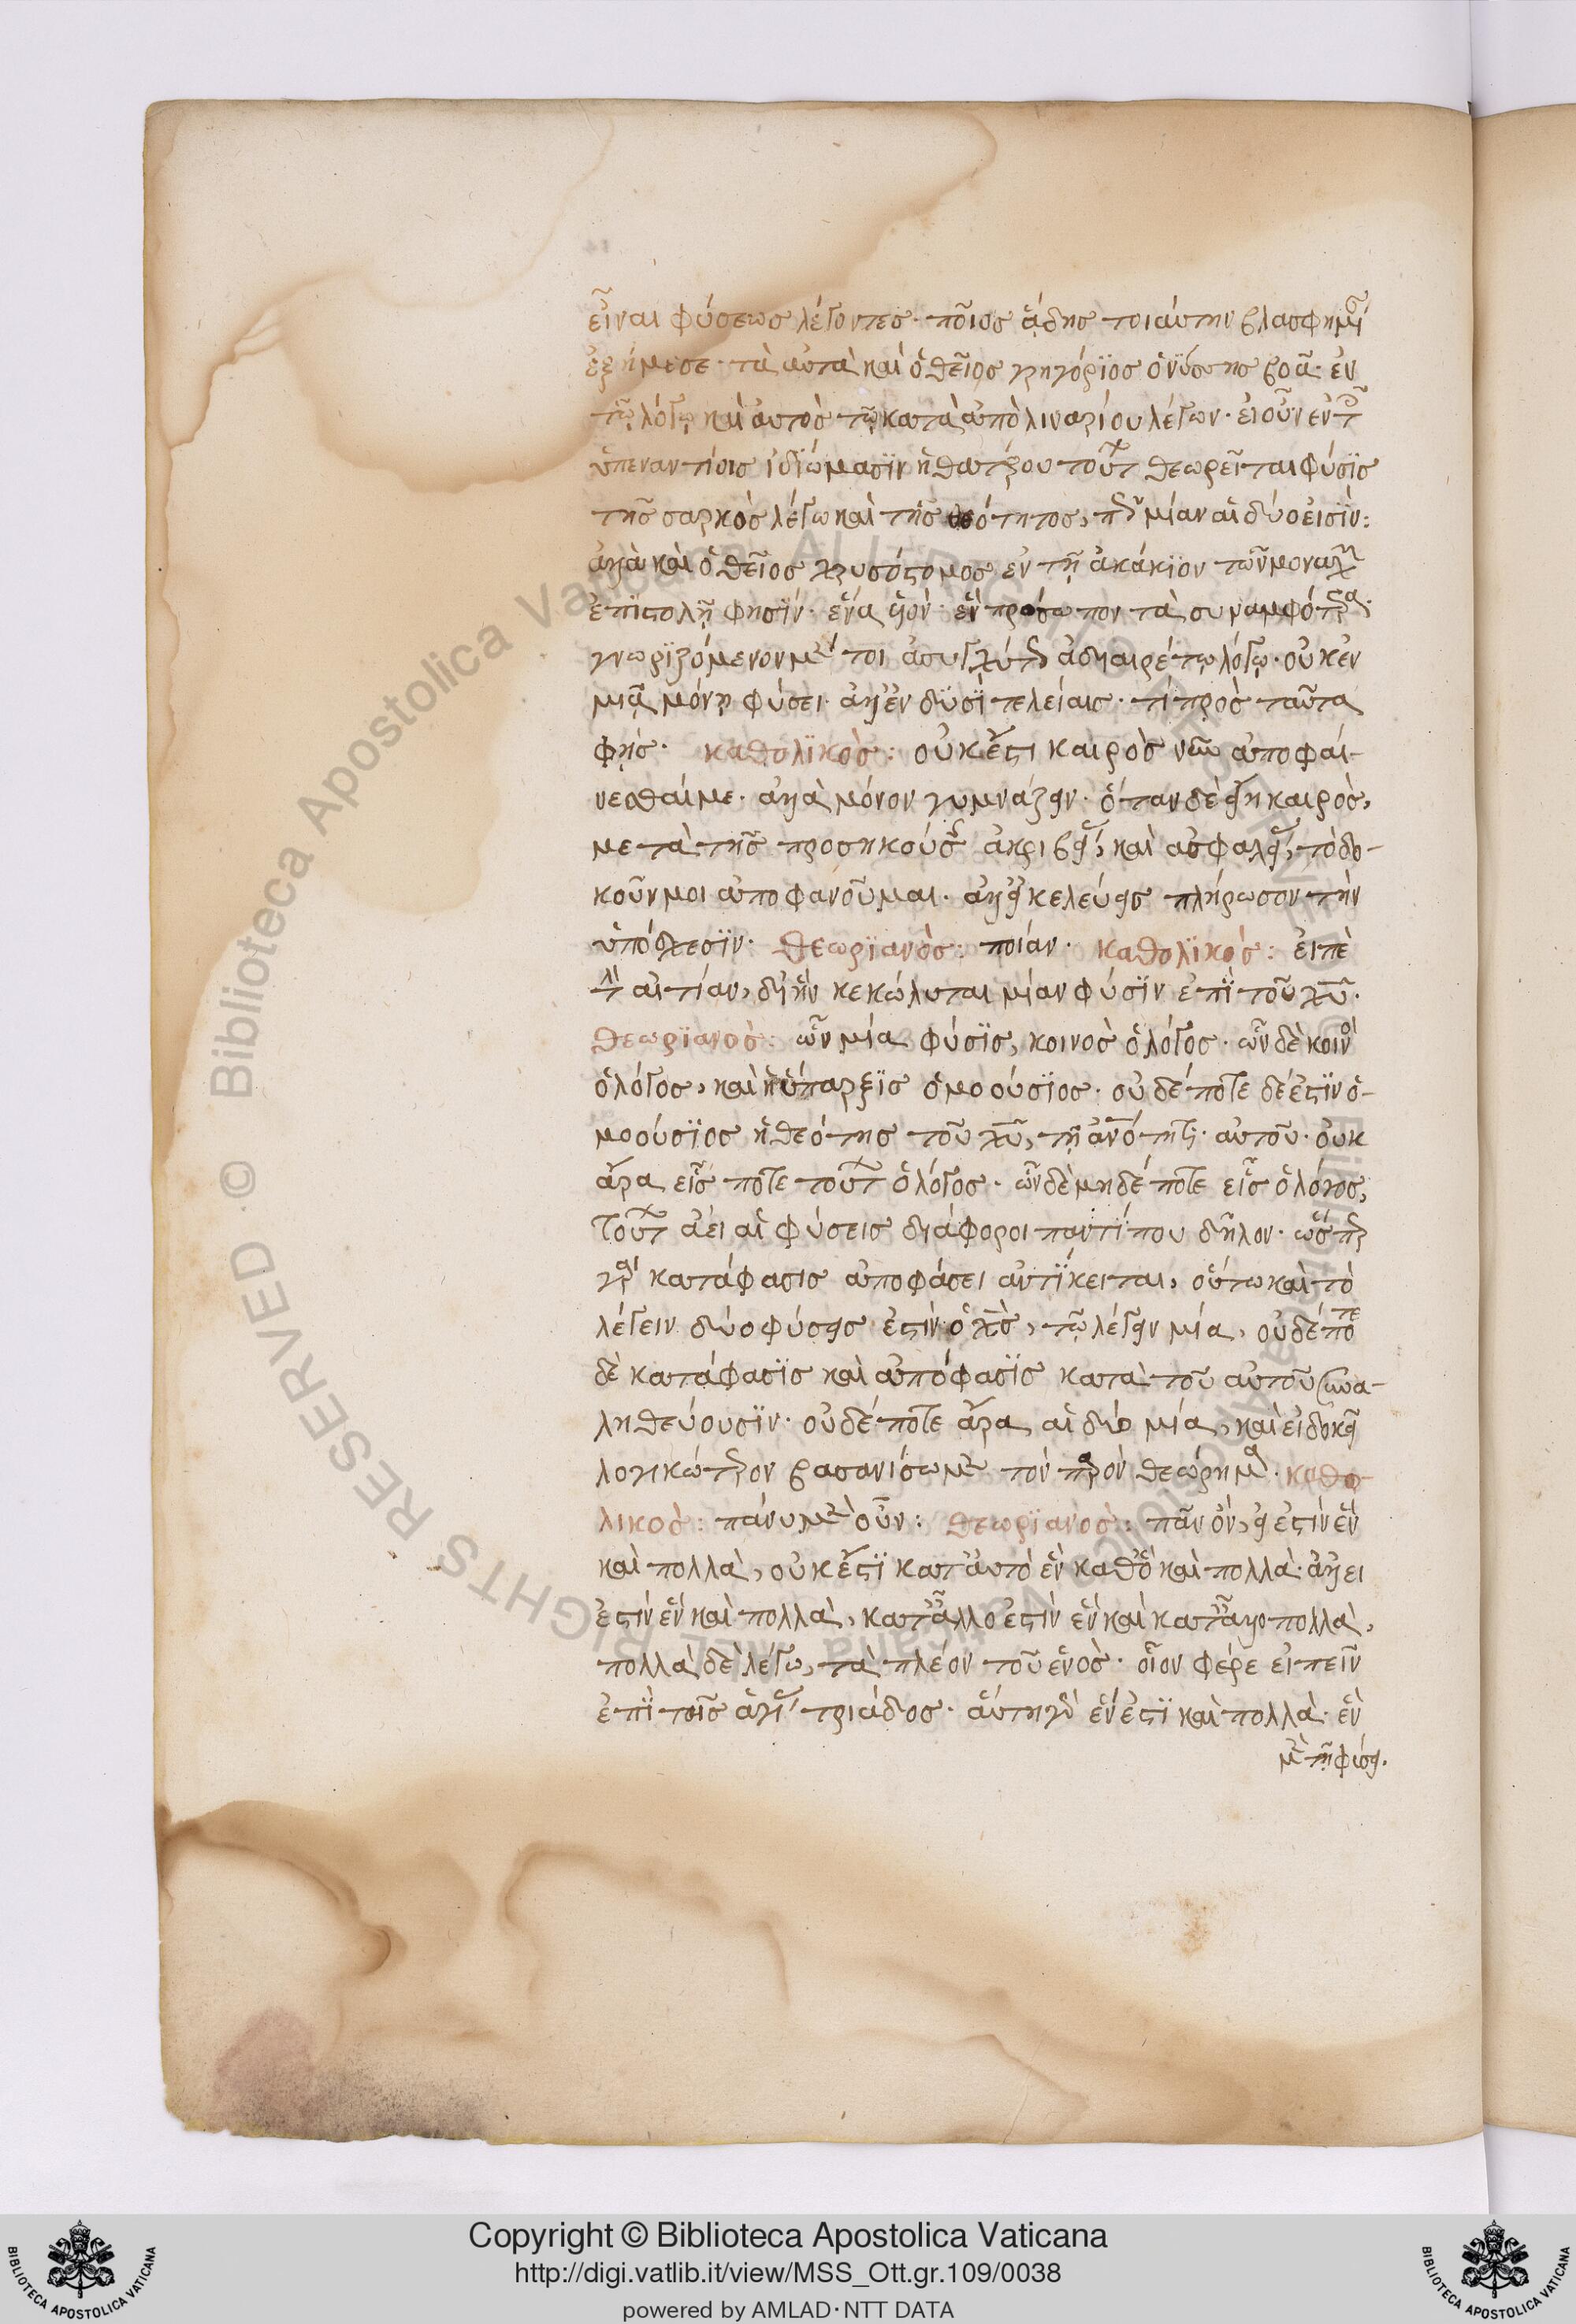 εἶναι φύσεως λέγοντες· ποῖος ᾅδης τοιαύτην βλασφημί
ἐξήμεσε· τὰ αὐτὰ καὶ ὁ θεῖος γρηγόρϊος ὁ νύσσης βοᾷ· ἐν
τῷ λόγῳ καὶ αὐτὸς τῷ κατὰ ἀπὸλιναρίου λέγων· εἰ οὖν ἐν τ
ὑπεναντίοις ἰδϊώμασϊν ἡ θατέρου τούτ θεωρεῖται φύσϊς
τῆς σαρκὸς λέγω καὶ τῆς θεότητος, π μίαν αἱ δύο εἰσὶν:
ἀλλὰ καὶ ὁ θεῖος χρυσόστομος ἐν τῇ ἀκάκϊον τῶν μοναχ
ἐπϊστολῇ φησϊν· ἕνα υἱὸν· ἓν πρόσωπον τὰ συναμφότερα·
γνωρϊζόμενον μέν τοι ἀσυγχύτῳ ἀδιαιρέτῳ λόγῳ· οὐκ ἐν
μιᾷ μόνῃ φύσει· ἀλλ' ἐν δϋσὶ τελείαις· τί πρὸς ταῦτα
φῄς· καθολϊκὸς: οὐκ ἔστι καιρὸς νῦν ἀποφαί-
νεσθαί με· ἀλλὰ μόνον γυμνάζειν· ὅταν δὲ ᾖ καιρὸς,
μετὰ τῆς προσηκούσης ἀκριβεί, καὶ ἀσφαλεί, τὸ δο-
κοῦν μοι ἀποφανοῦμαι· ἀλλ' εἰ κελεύεις πλήρωσον τὴν
ὑπόσχεσϊν· θεωρϊανὸς: ποίαν· καθολϊκὸς: εἰπὲ
τὴν αἰτίαν, δι' ἣν κεκώλυται μίαν φύσϊν ἐπὶ τοῦ χῦ·
θεωρϊανὸς: ὧν μία φύσϊς, κοινὸς ὁ λόγος· ὧν δὲ κοιν
ὁ λόγος, καὶ ἡ ὕπαρξϊς ὁμοούσϊος· οὐδέποτε δέ ἐστϊν ὁ-
μοούσϊος ἡ θεότης τοῦ χῦ, τῇ ἀνότητι αὐτοῦ· οὐκ
ἄρα εἷς ποτε τούτ ὁ λόγος· ὧν δὲ μηδέποτε εἷς ὁ λόγος,
τούτ ἀεὶ αἱ φύσεις διάφοροι παντί που δῆλον· ὥσπερ
γὰρ κατάφασις ἀποφάσει ἀντϊκειται, οὕτω καὶ τὸ
λέγειν δύο φύσεις ἐστὶν ὁ χς, τῷ λέγειν μία, οὐδέποτε
δὲ κατάφασϊς καὶ ἀπόφασϊς κατὰ τοῦ αὐτοῦ συνα-
ληθεύουσϊν· οὐδέποτε ἄρα αἱ δύο μία, καὶ εἰ δοκεῖ
λογικώτερον βασανίσωμεν τὸν παρὸν θεώρημα· καθο-
λικὸς: πάνυ μὲν οὖν: θεωρϊανὸς: πᾶν ὂν, εἰ ἐστὶν ἓν
καὶ πολλὰ, οὐκ ἔστϊ κατ' αὐτὸ ἓν καθ' ὃ καὶ πολλὰ· ἀλλ' εἰ
ἐστὶν ἓν καὶ πολλὰ, κατ' ἄλλο ἐστὶν ἓν καὶ κατ' ἄλλο πολλὰ,
πολλὰ δὲ λέγω, τὰ πλέον τοῦ ἑνὸς· οἷον φέρε εἰπεῖν
ἐπὶ τῆς ἁγί τριάδος· αὕτη γὰρ ἕν ἐστϊ καὶ πολλὰ· ἓν
μὲν τῇ φύσει.
Copyright © Biblioteca Apostolica Vaticana
http://digi.vatlib.it/view/MSS_Ott.gr.109/0038
powered by AMLAD·NTT DATA